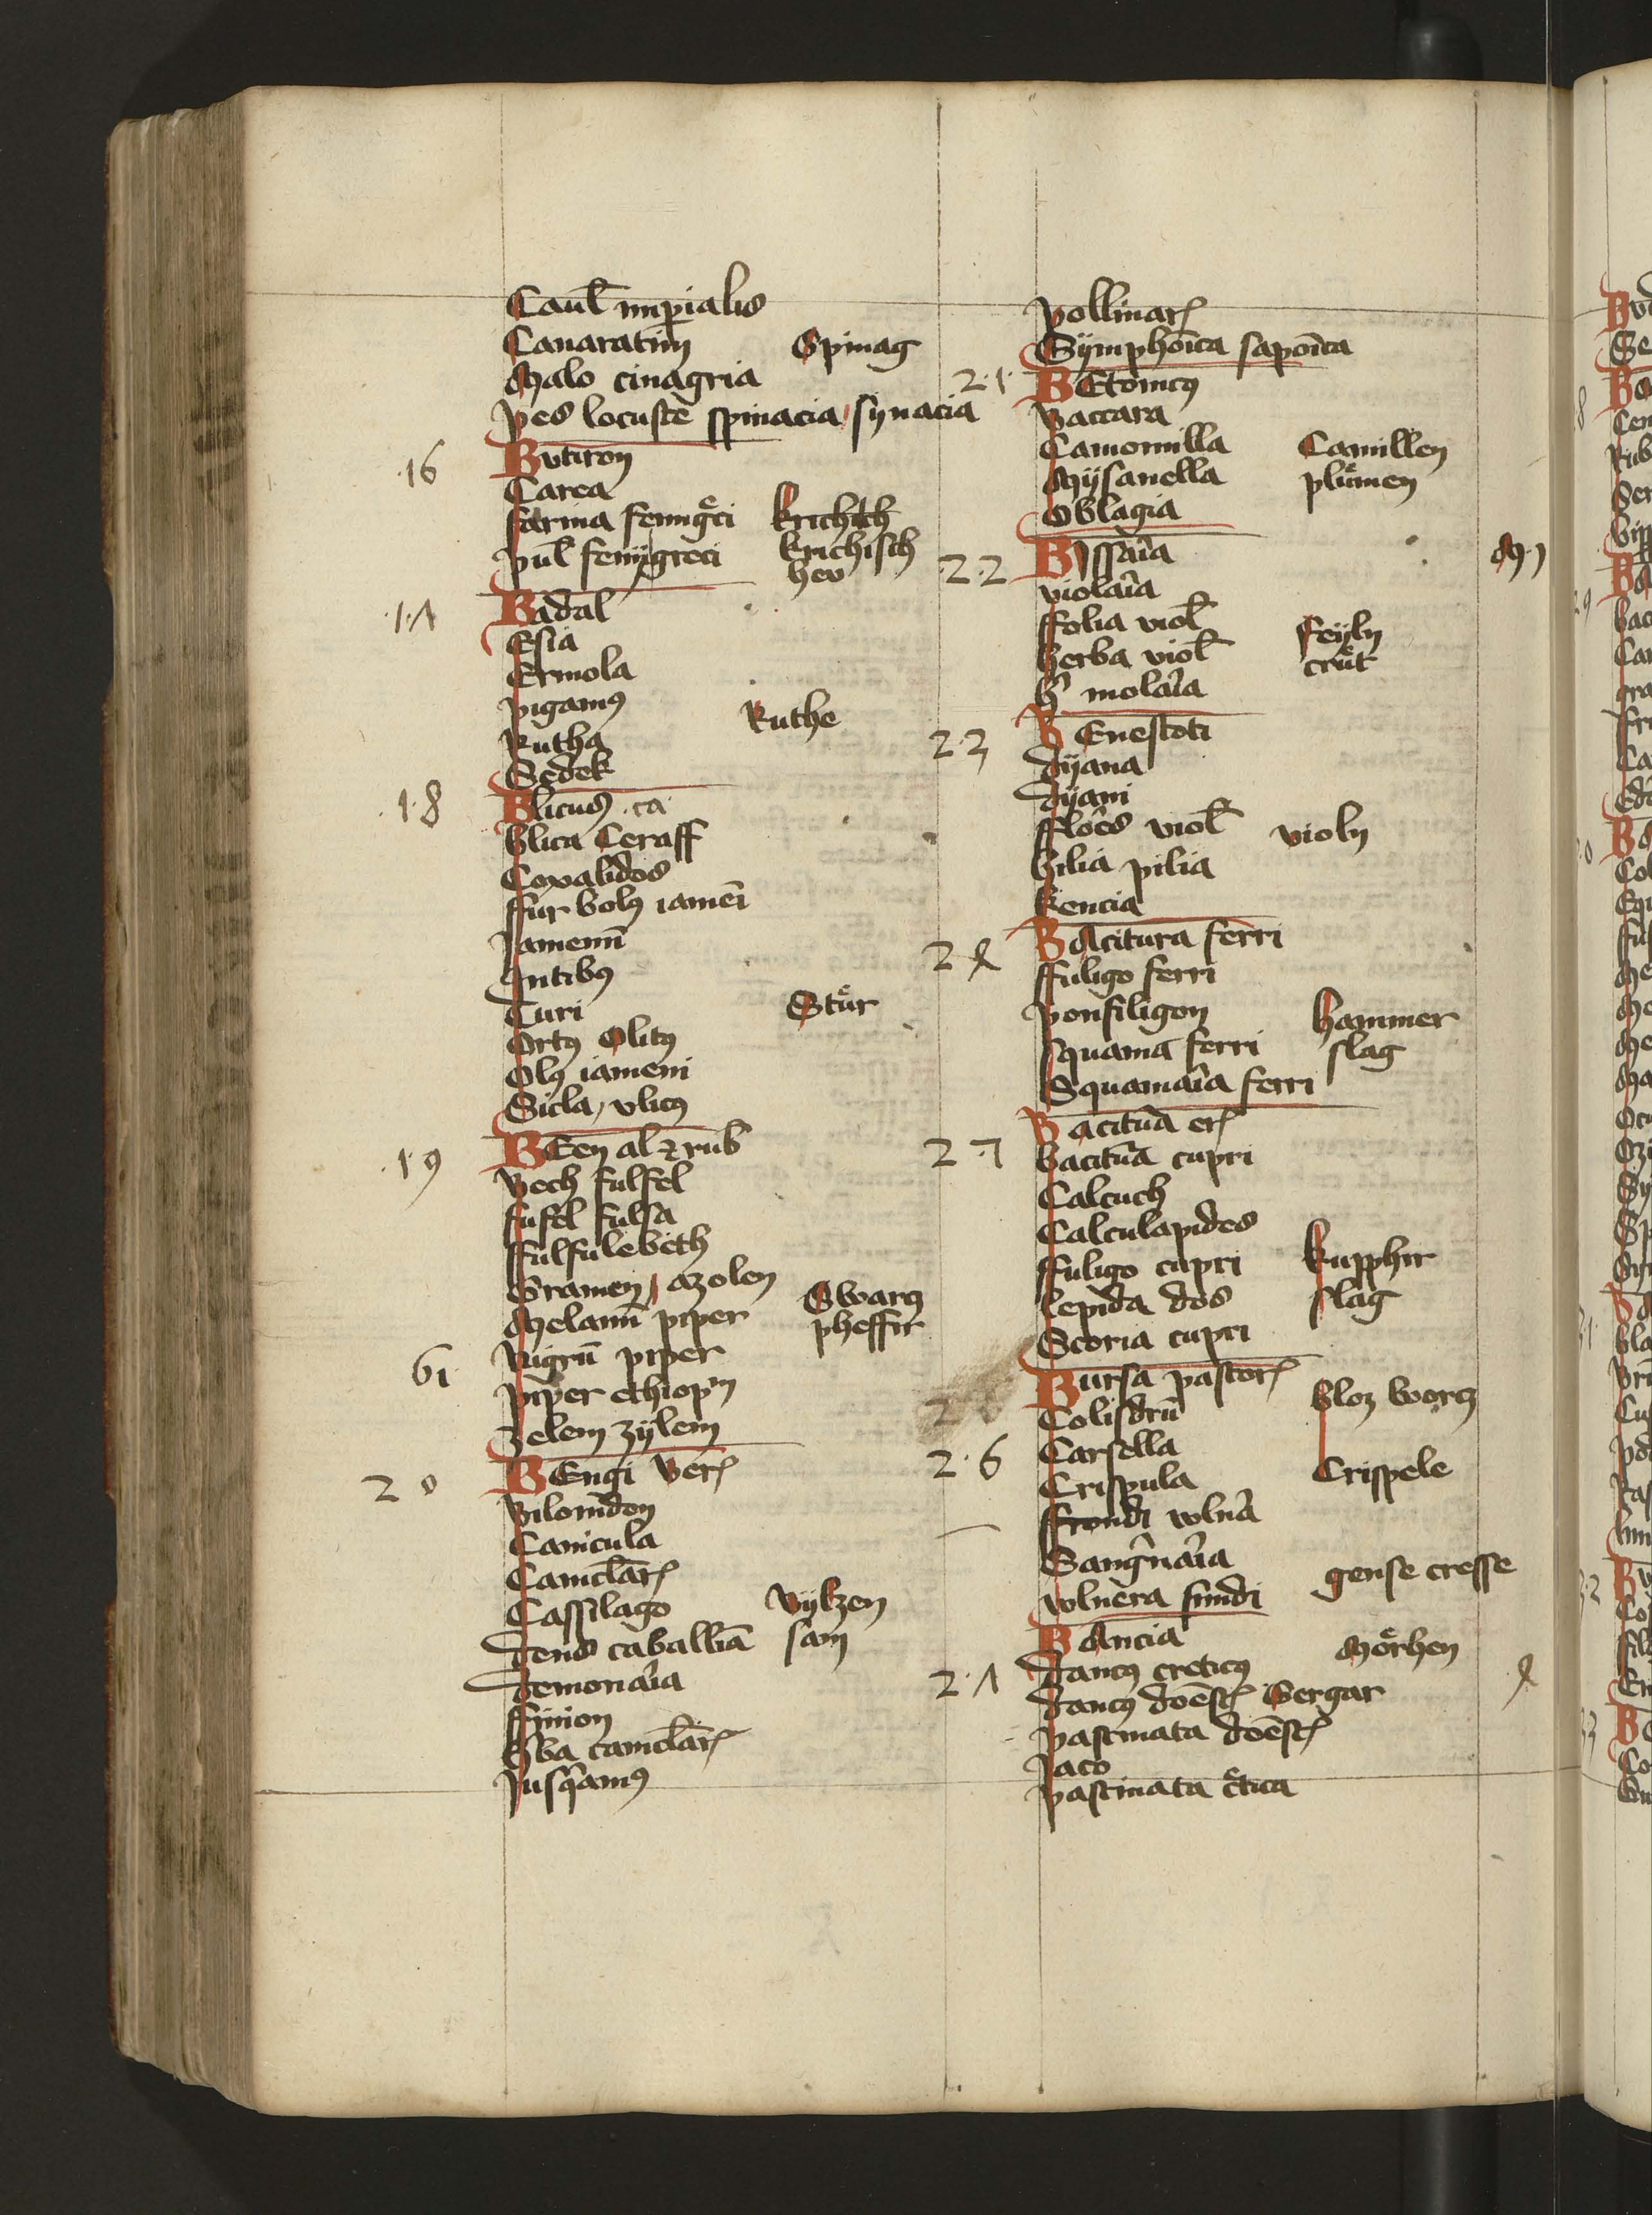 Caul̄ imꝑialis
Canaratim Spinag
Malo cinagria
pes locuste spinacia synacia
16 Butiron
Carea
farina fenigͤci krichith
pul̄ fenygreci krichisch
heu
1·7 Badal
Esia
Ermola
pigamꝰ
Ruthe
Rutha
Sedek
1·8 Blicus ca
blica Ceraff
Coxalidos
ffur bolꝰ iamēi
Jamenn̄
Intibꝰ
Curi Stuͤr
Ortꝰ Olitꝰ
Olꝰ iameni
Sicla, vlicꝰ
·1·9 BEen al ⁊ rub
Bech fulfel
fufel fulfa
ffulfulebeth
Gramen, azolen
Swarcz
Melann̄ piper pheffir
61 Nigrū piper
piper ethiopͫ
zelem zylem
20 BEngi Verꝭ
Bilonidon
Canicula
Canicl̄arꝭ
Cassilago Bylzen
dens caballīa sam
demonaīa
ffinion
hba canicl̄arꝭ
Jusqͣamꝰ
pollinarꝭ
Symphoīca sapoīca
2·1· BEtonicꝰ
Baccara
Camomilla Camillen
Mysanella pluͤmen
Oblagia
2·2 Bissaīa M·J
violaīa
ffolia viol̄ Feyln
herba viol̄ cruͤt
h̄ molaīa
2·3 BEnestoti
dyana
dyani
fflores viol̄ violn
hilia pilia
kencia
2·4 BAcitura ferri
ffuligo ferri
ponfiligon hammer
squama ferri slag
Squamaīa ferri
2·5 Bacitur̄a erꝭ
bacitur̄a cupri
Calcuch
Calculapides
ffuligo cupri kupphir
lepida dos slag
Scoria cupri
Bursa pastorꝭ bloz worcz
Colisdrū
2·6 Carsella
Crispula Crispele
ffrondi vlnā
Sangͥnaīa gense cresse
vlnera fundi
BAncia Moͤrhen
2·7 dancꝰ creticꝰ
dancꝰ doēstꝭ Gergar
pastinata doēstꝭ
Jaco
pastinata c̄tica